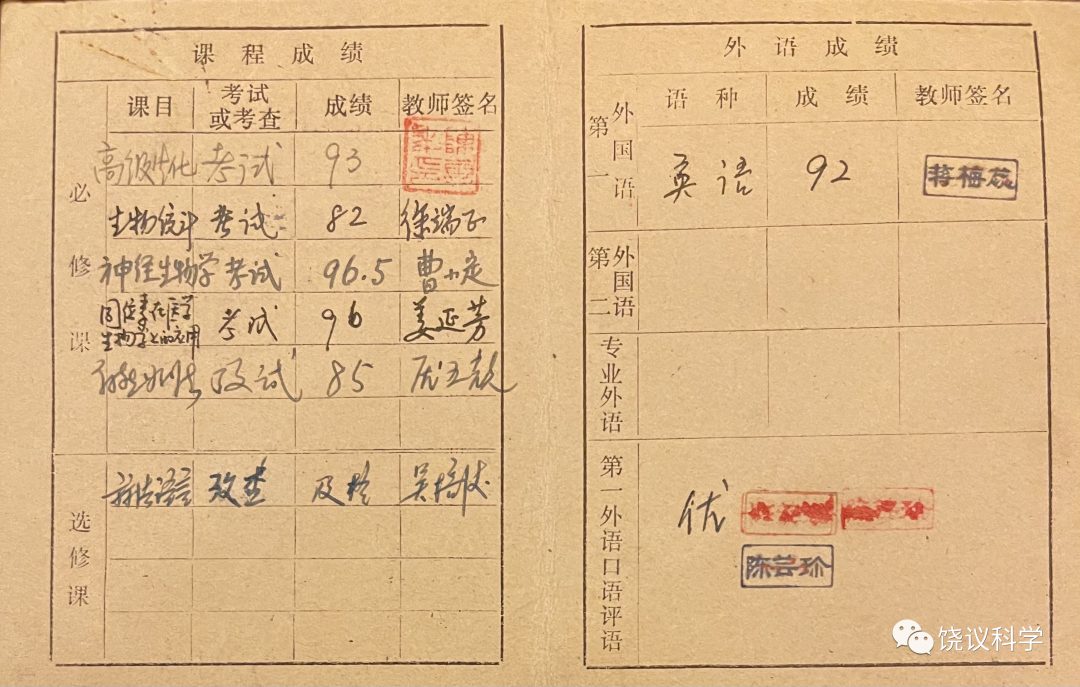 课程成绩
课目 考试或考查 成绩 教师签名
必修课
高级生化 考试 93
生物统计 考试 82 徐端正
神经生物学 考试 96.5 曹小定
同位素在医学生物学上的应用 考试 96 姜延芳
考试 85
选修课
算法语言 考查 及格
外语成绩
语种 成绩 教师签名
第一外国语 英语 92 蒋梅蕊
第二外国语
专业外语
第一外语口语评语 优
陈芸珍
饶议科学